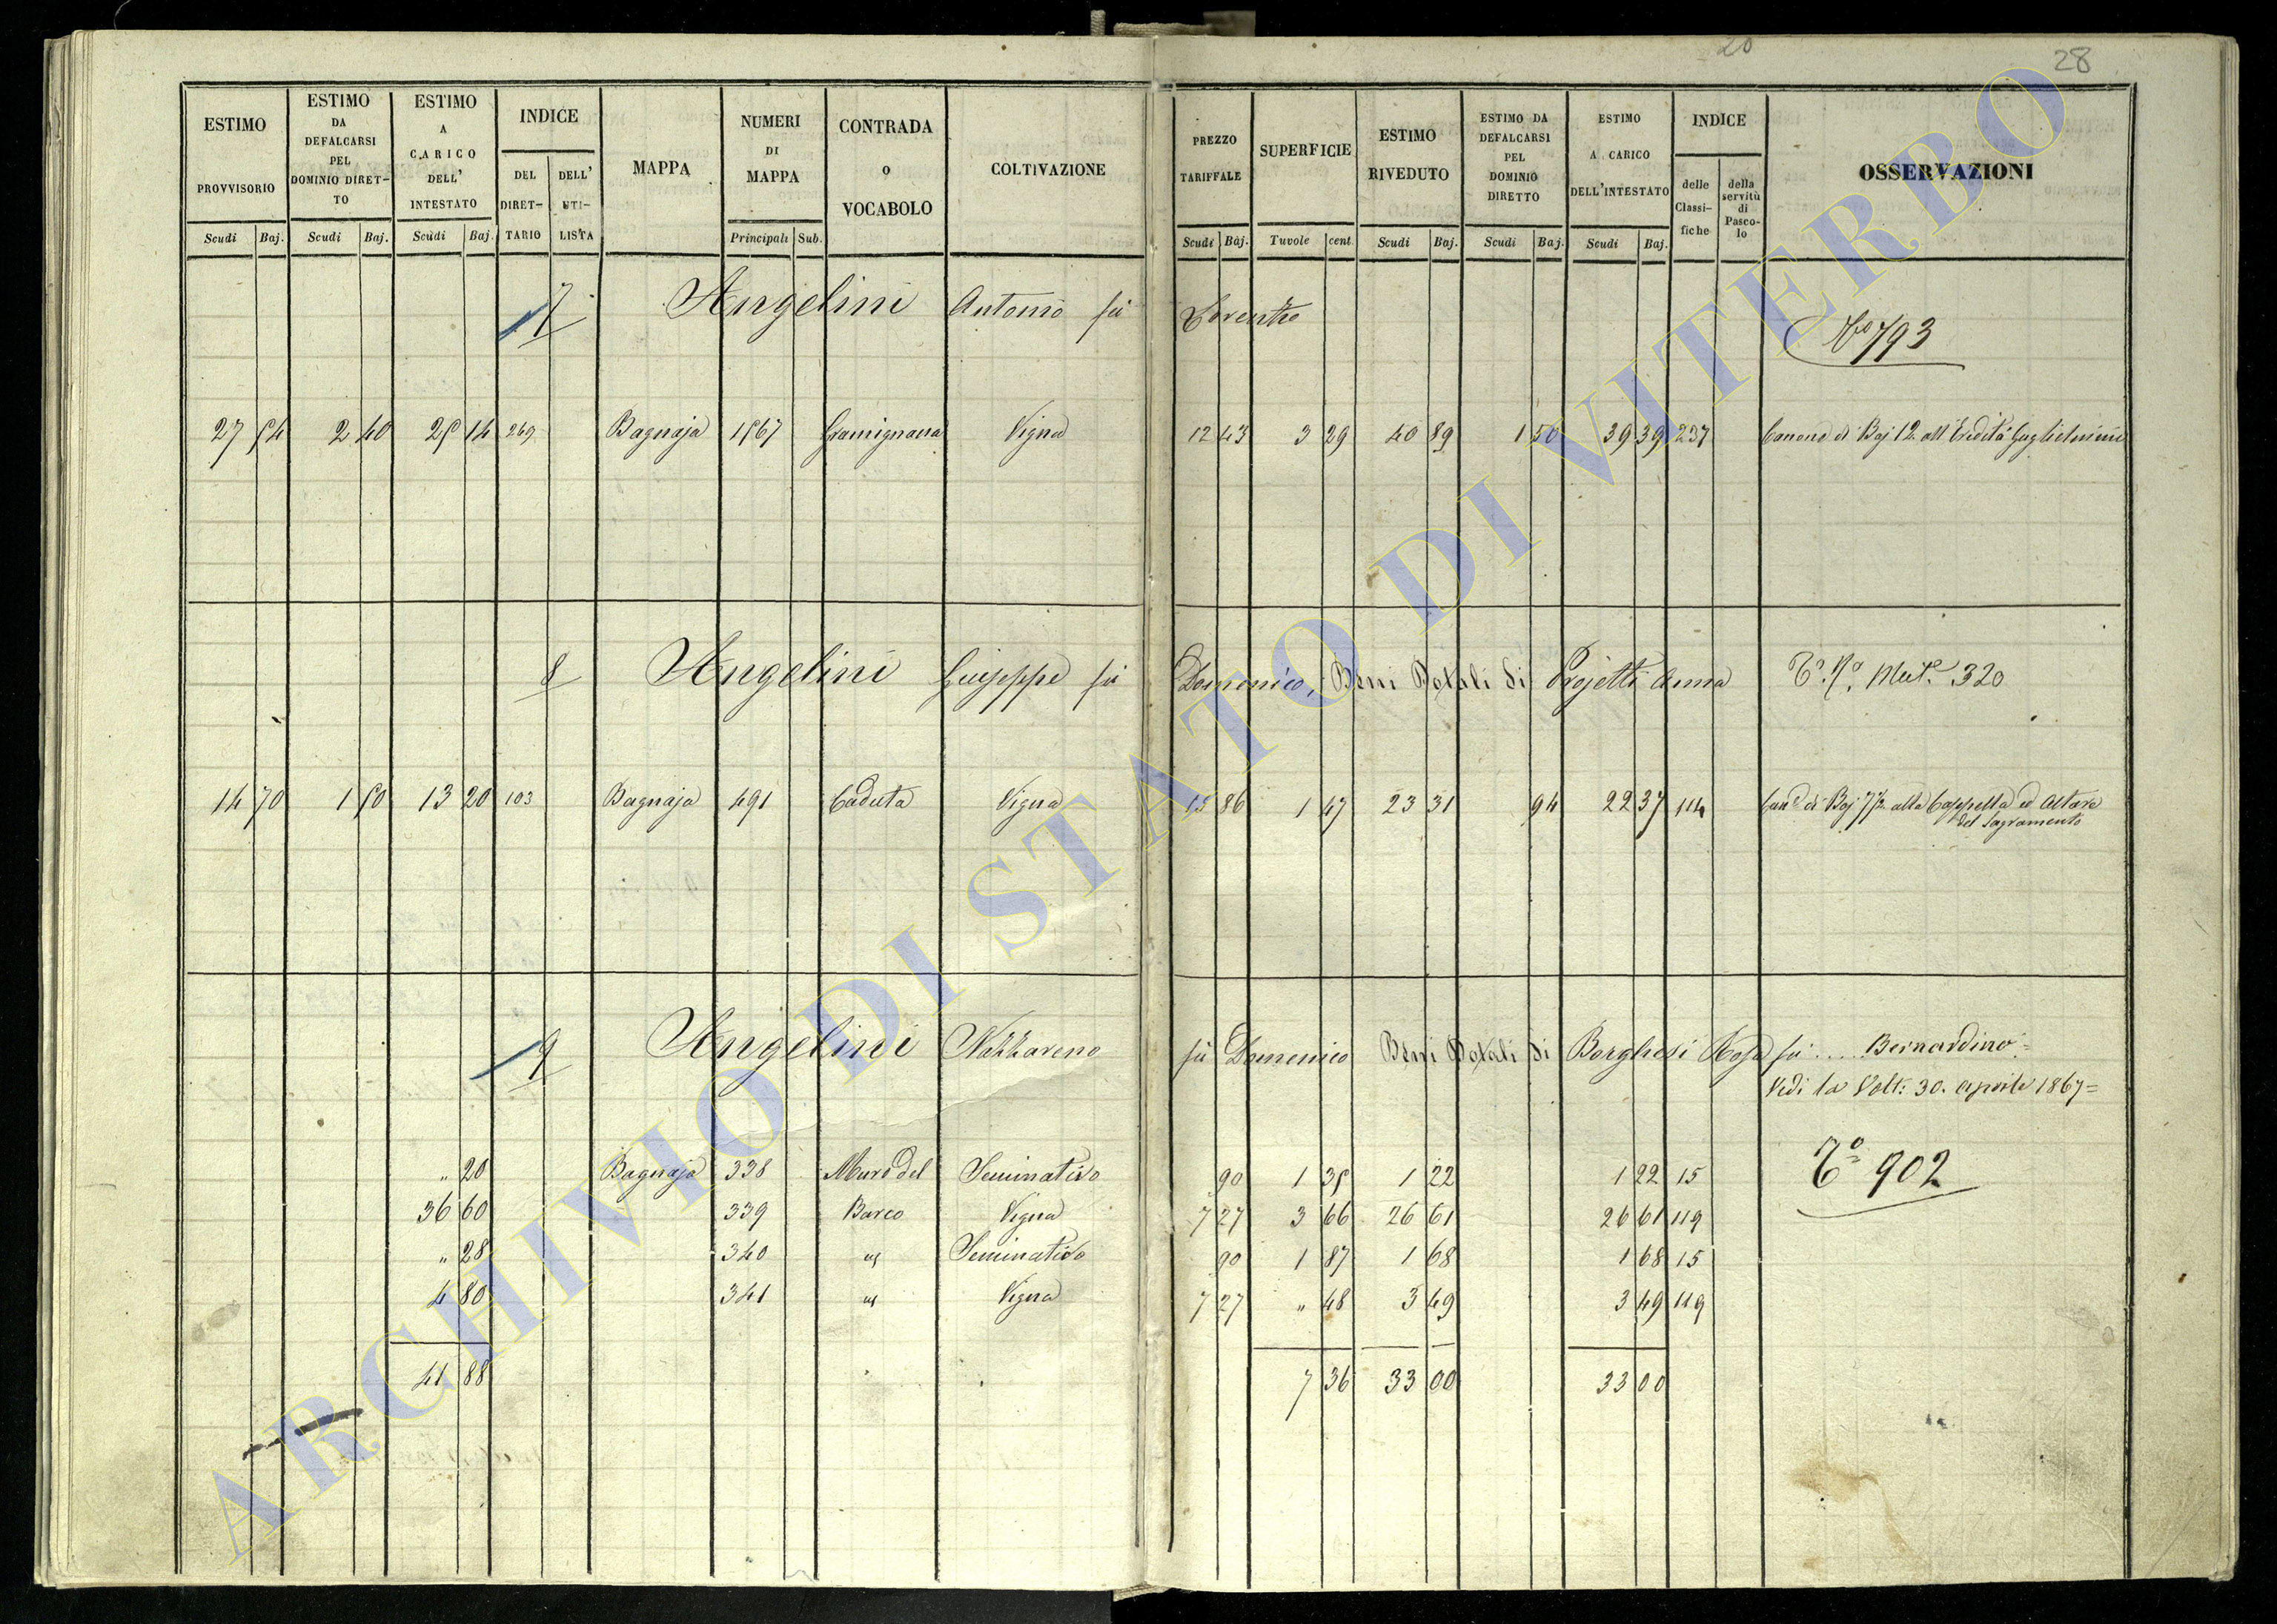 20
28
ESTIMO PROVVISORIO
Scudi Baj.
ESTIMO DA DEFALCARSI PEL DOMINIO DIRETTO
Scudi Baj.
ESTIMO A CARICO DELL' INTESTATO
Scudi Baj.
INDICE
DEL DIRETTARIO
DELL' UTILISTA
MAPPA
NUMERI DI MAPPA
Principali Sub.
CONTRADA o VOCABOLO
COLTIVAZIONE
PREZZO TARIFFALE
Scudi Baj.
SUPERFICIE
Tavole cent.
ESTIMO RIVEDUTO
Scudi Baj.
ESTIMO DA DEFALCARSI PEL DOMINIO DIRETTO
Scudi Baj.
ESTIMO A CARICO DELL'INTESTATO
Scudi Baj.
INDICE
delle Classifiche
della servitù di Pascolo
OSSERVAZIONI
7 Angelini Antonio fù Lorenzo
No 793
27 54 2 40 25 14 269 Bagnaja 1567 Gramignana Vigna 12 43 3 29 40 89 1 50 39 39 237 Canone di Baj 12 all'Eredità Guglielmini
8 Angelini Giuseppe fù Domenico, Beni Dotali di Projetti Anna To. No. Mut.e 320
14 70 1 50 13 20 103 Bagnaja 491 Caduta Vigna 15 86 1 47 23 31 94 22 37 114 Can.e di Baj 7½ alla Cappella ed Altare
del Sagramento
9 Angelini Nazzareno fù Domenico Beni Dotali di Borghesi Rosa fù .... Bernardino=
Vedi la Volt: 30. aprile 1867=
To 902
" 20 Bagnaja 338 Muro del Seminativo 90 1 35 1 22 1 22 15
36 60 339 Barco Vigna 7 27 3 66 26 61 26 61 119
" 28 340 " Seminativo 90 1 87 1 68 1 68 15
4 80 341 " Vigna 7 27 " 48 3 49 3 49 119
41 88 7 36 33 00 33 00
ARCHIVIO DI STATO DI VITERBO